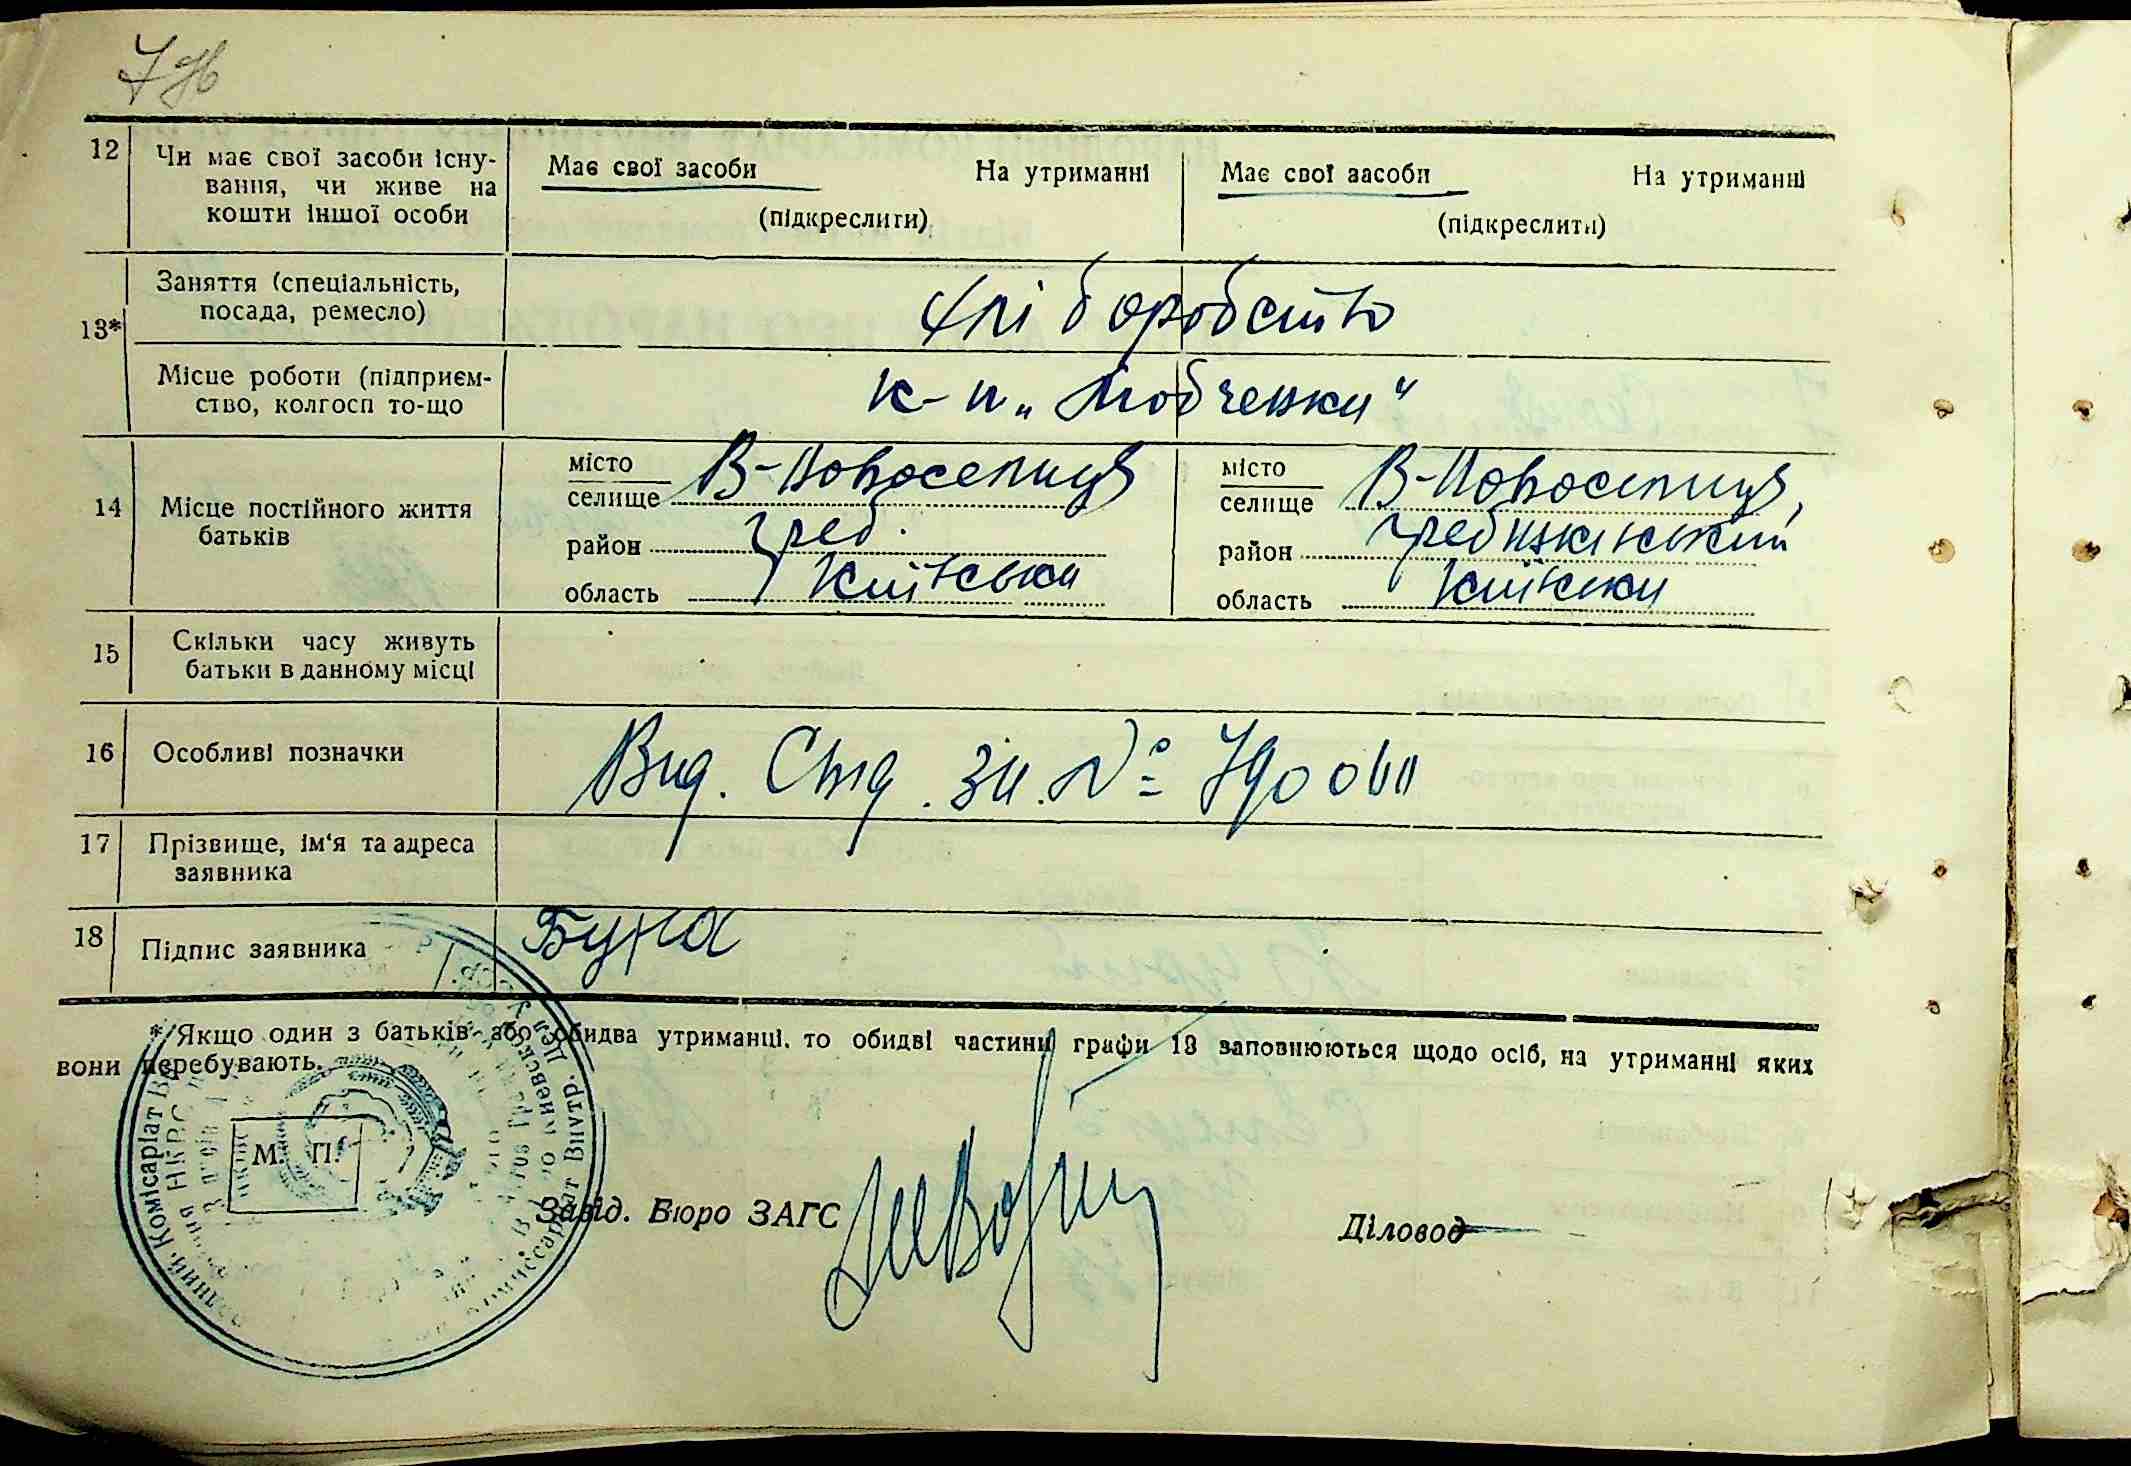 12 Чи має свої засоби існу-
вання, чи живе на
кошти іншої особи
Має свої засоби На утриманні
(підкреслити)
Має свої засоби На утриманні
(підкреслити)
13*
Заняття (спеціальність,
посада, ремесло)
хліборобство
Місце роботи (підприєм-
ство, колгосп то-що
к-п „Любченка"
14 Місце постійного життя
батьків
місто
селище В-Новоселиця
район Греб.
область Київська
місто
селище В-Новоселиця,
район Гребінківський
область Київська
15 Скільки часу живуть
батьки в данному місці
16 Особливі позначки
Вид. Свід. за №
17 Прізвище, ім'я та адреса
заявника
18 Підпис заявника
*/ Якщо один з батьків або обидва утриманці. то обидві частини графи 13 заповнюються щодо осіб, на утриманні яких
вони перебувають.
М. П.
Завід. Бюро ЗАГС
Діловод